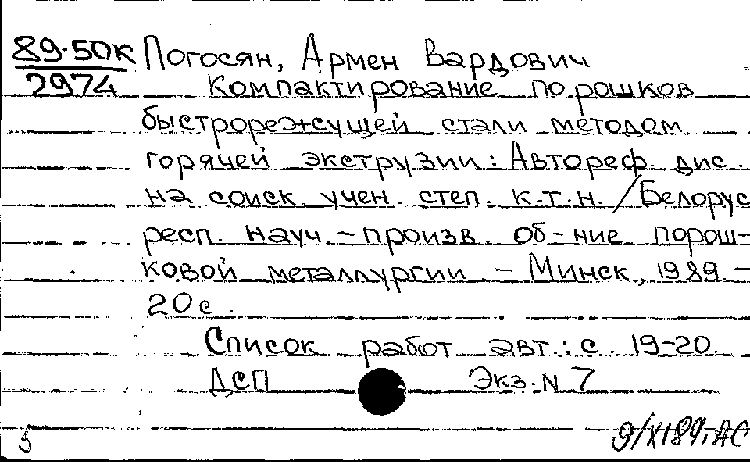 89-50к Погосян, Армен Вардович
2974 Компактирование порошков
быстрорежущей стали методом
горячей экструзии: Автореф. дис.
на соиск. учен. степ. к.т.н. / Белорус
респ. науч.-произв. об-ние порош-
ковой металлургии. - Минск, 1989. -
20 с.
Список работ авт.: с. 19-20
ДСП Экз. N 7
5 9/XI89.АС